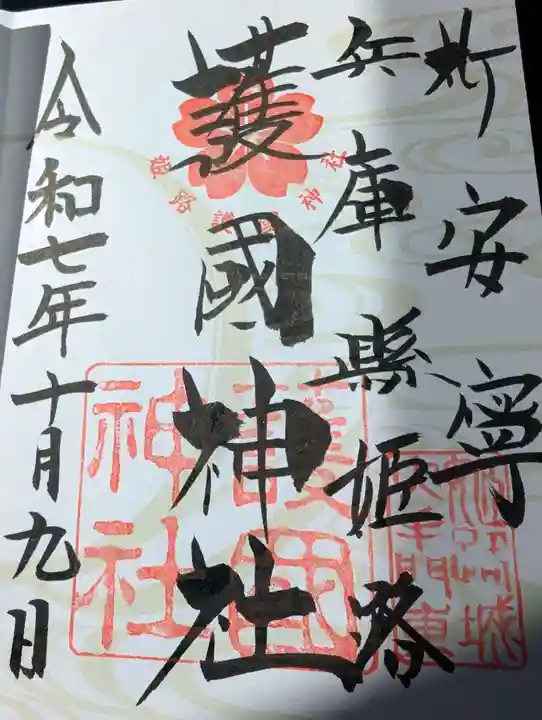 祈安寧
兵庫縣姫路
護國神社
姫路護國神社
護國神社
令和七年十月九日